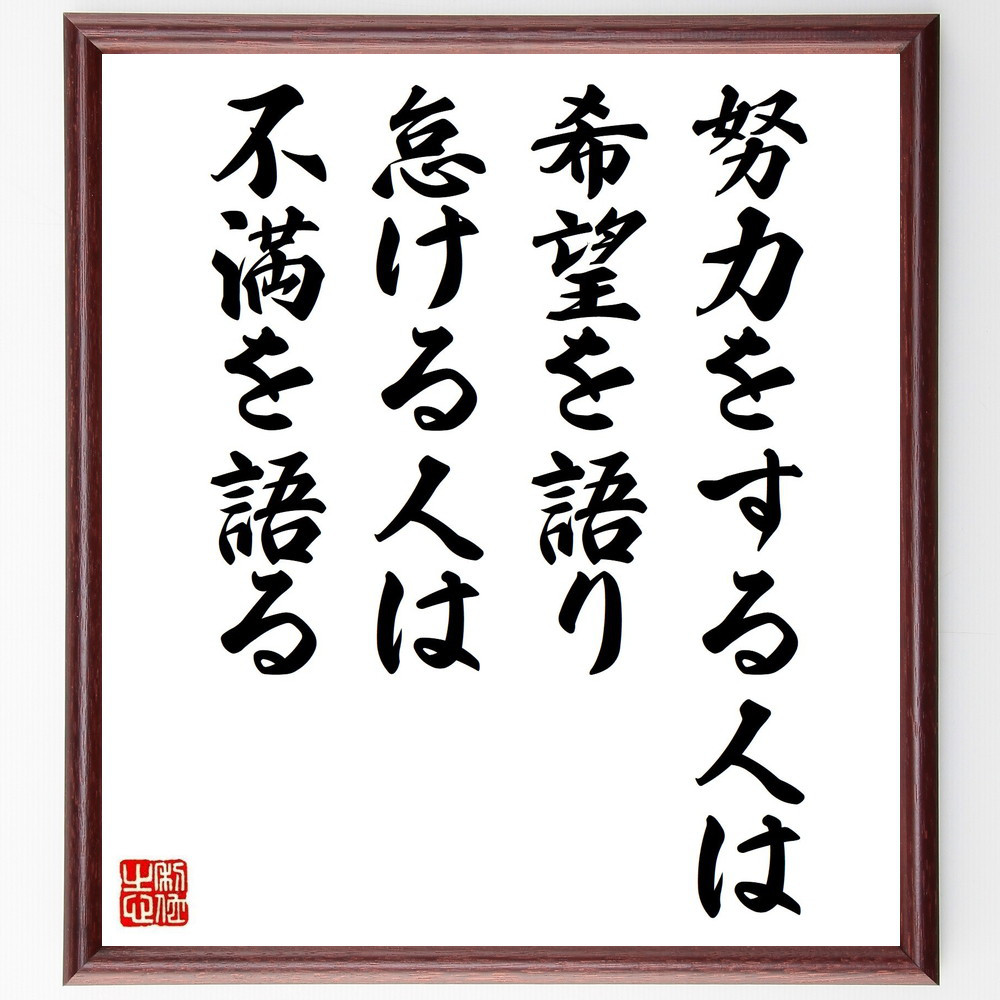 努力をする人は
希望を語り
怠ける人は
不満を語る